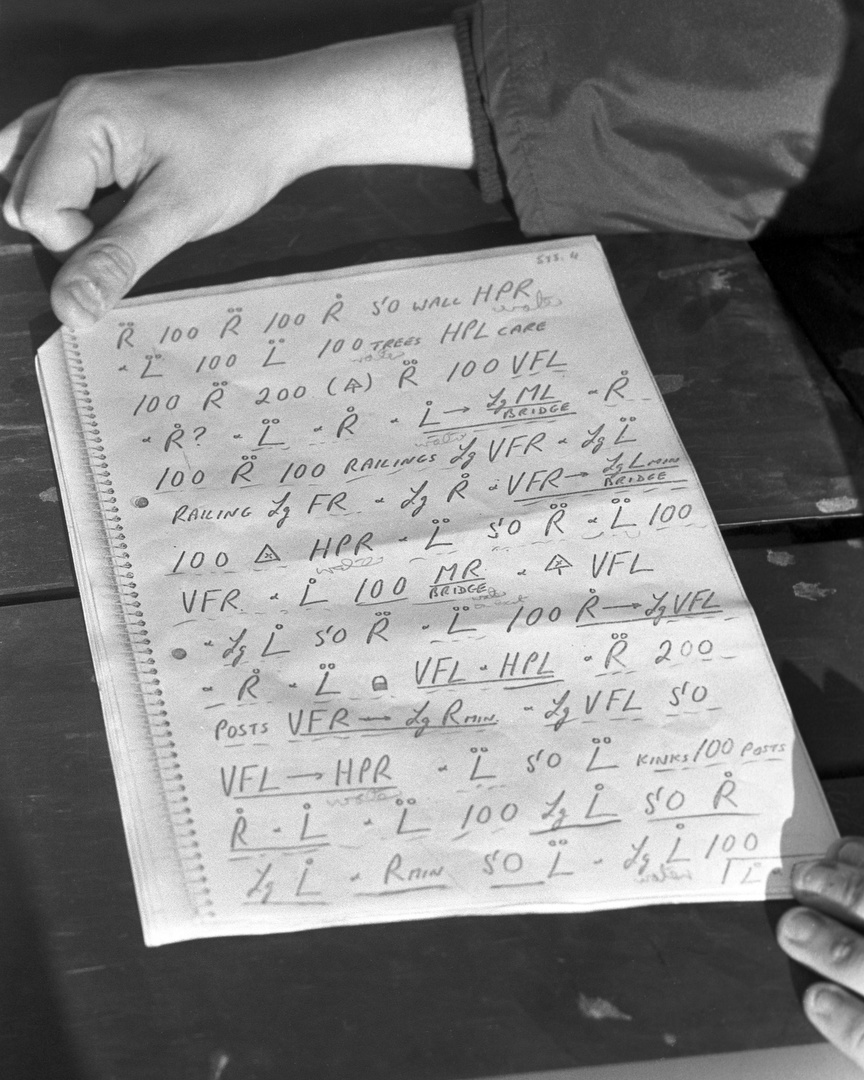 SS5. 4
R̈ 100 R̈ 100 R̊ 50 WALL HPR
water
" L̈ 100 L̈ 100 TREES HPL CARE
water
100 R̈ 200 (⚠) R̈ 100 VFL
" R̊? " L̈ " R̊ " L̊ → Lg ML BRIDGE " R̊
water
100 R̈ 100 RAILINGS Lg VFR " Lg L̈
RAILING Lg FR " Lg R̊ " VFR → Lg L MIN BRIDGE
100 ⚠ HPR " L̈ 50 R̈ " L̈ 100
water
VFR " L̊ 100 MR BRIDGE " ⚠ VFL
water
" Lg L̊ 50 R̈ " L̈ 100 R̊ → Lg VFL
" R̊ " L̈ VFL " HPL " R̈ 200
POSTS VFR → Lg R MIN " Lg VFL 50
VFL → HPR " L̈ 50 L̈ KINKS/100 POSTS
water
R̊ " L̊ " L̈ 100 Lg L̊ 50 R̊
Lg L̊ " R MIN 50 L̈ " Lg L̊ 100
water